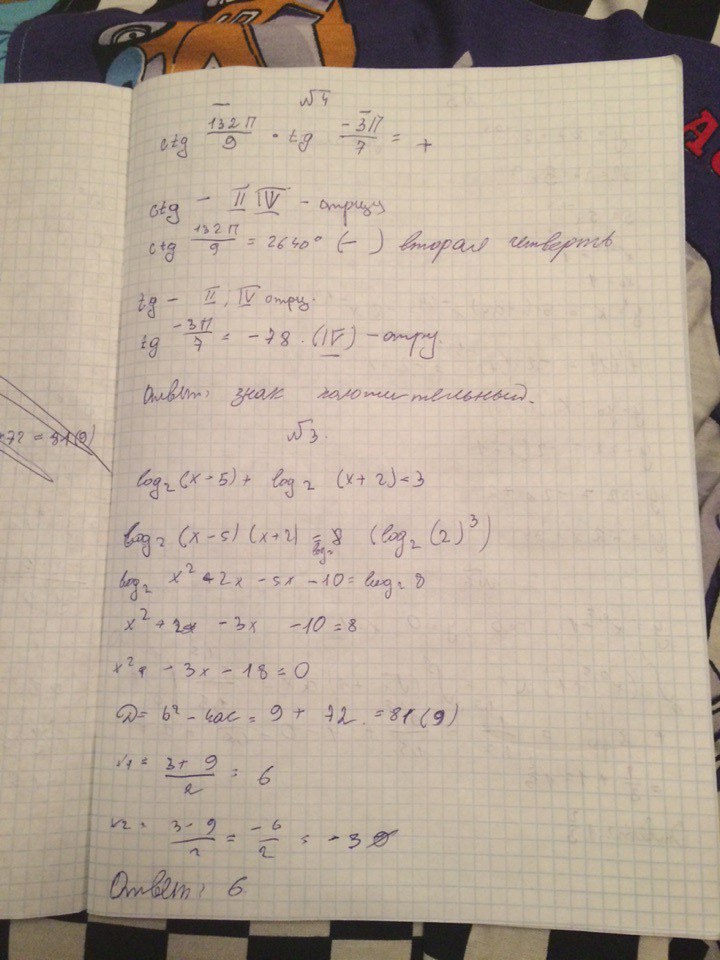 №4
ctg 132π/9 · tg -3π/7 = +
ctg - II IV - отриц
ctg 132π/9 = 2640° (-) вторая четверть
tg - II, IV отриц.
tg -3π/7 = -78. (IV) - отриц.
Ответ: знак положительный.
×72 = 81(9)
№3.
log₂(x-5) + log₂ (x+2) = 3
log₂ (x-5)(x+2) = log₂ 8 (log₂(2)³)
log₂ x² + 2x - 5x - 10 = log₂ 8
x² + 2x - 3x - 10 = 8
x² - 3x - 18 = 0
D = b² - 4ac = 9 + 72 = 81(9)
x1 = 3+9/2 = 6
x2 = 3-9/2 = -6/2 = -3
Ответ: 6